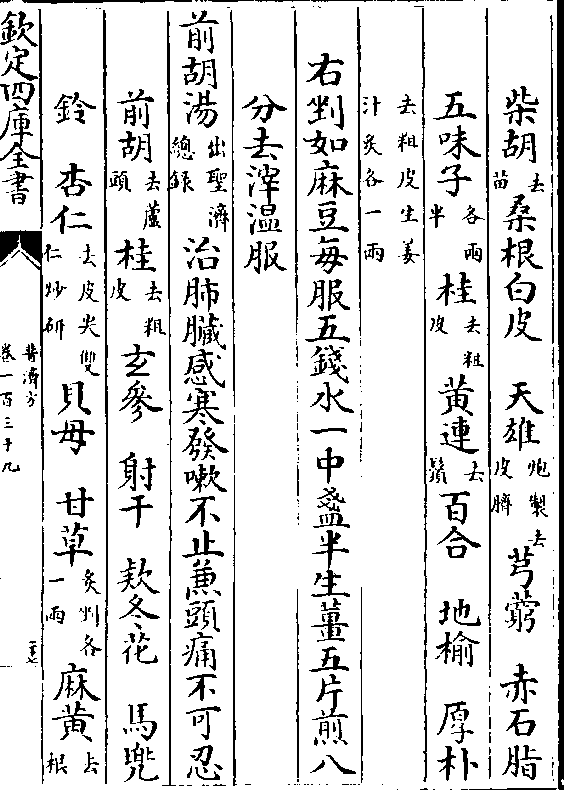 柴胡去苗 桑根白皮 天雄炮製去皮臍 芎藭 赤石脂
五味子各兩半 桂去粗皮 黄連去鬚 百合 地榆 厚朴
去粗皮生姜汁炙各一兩
右剉如麻豆每服五錢水一中盞半生薑五片煎八
分去滓温服
前胡湯出聖濟總録 治肺臟感寒發嗽不止兼頭痛不可忍
前胡去蘆頭 桂去粗皮 玄參 射干 欵冬花 馬兜
鈴 杏仁去皮尖雙仁炒研 貝母 甘草炙剉各一兩 麻黄去根
欽定四庫全書
普濟方
卷一百三十九